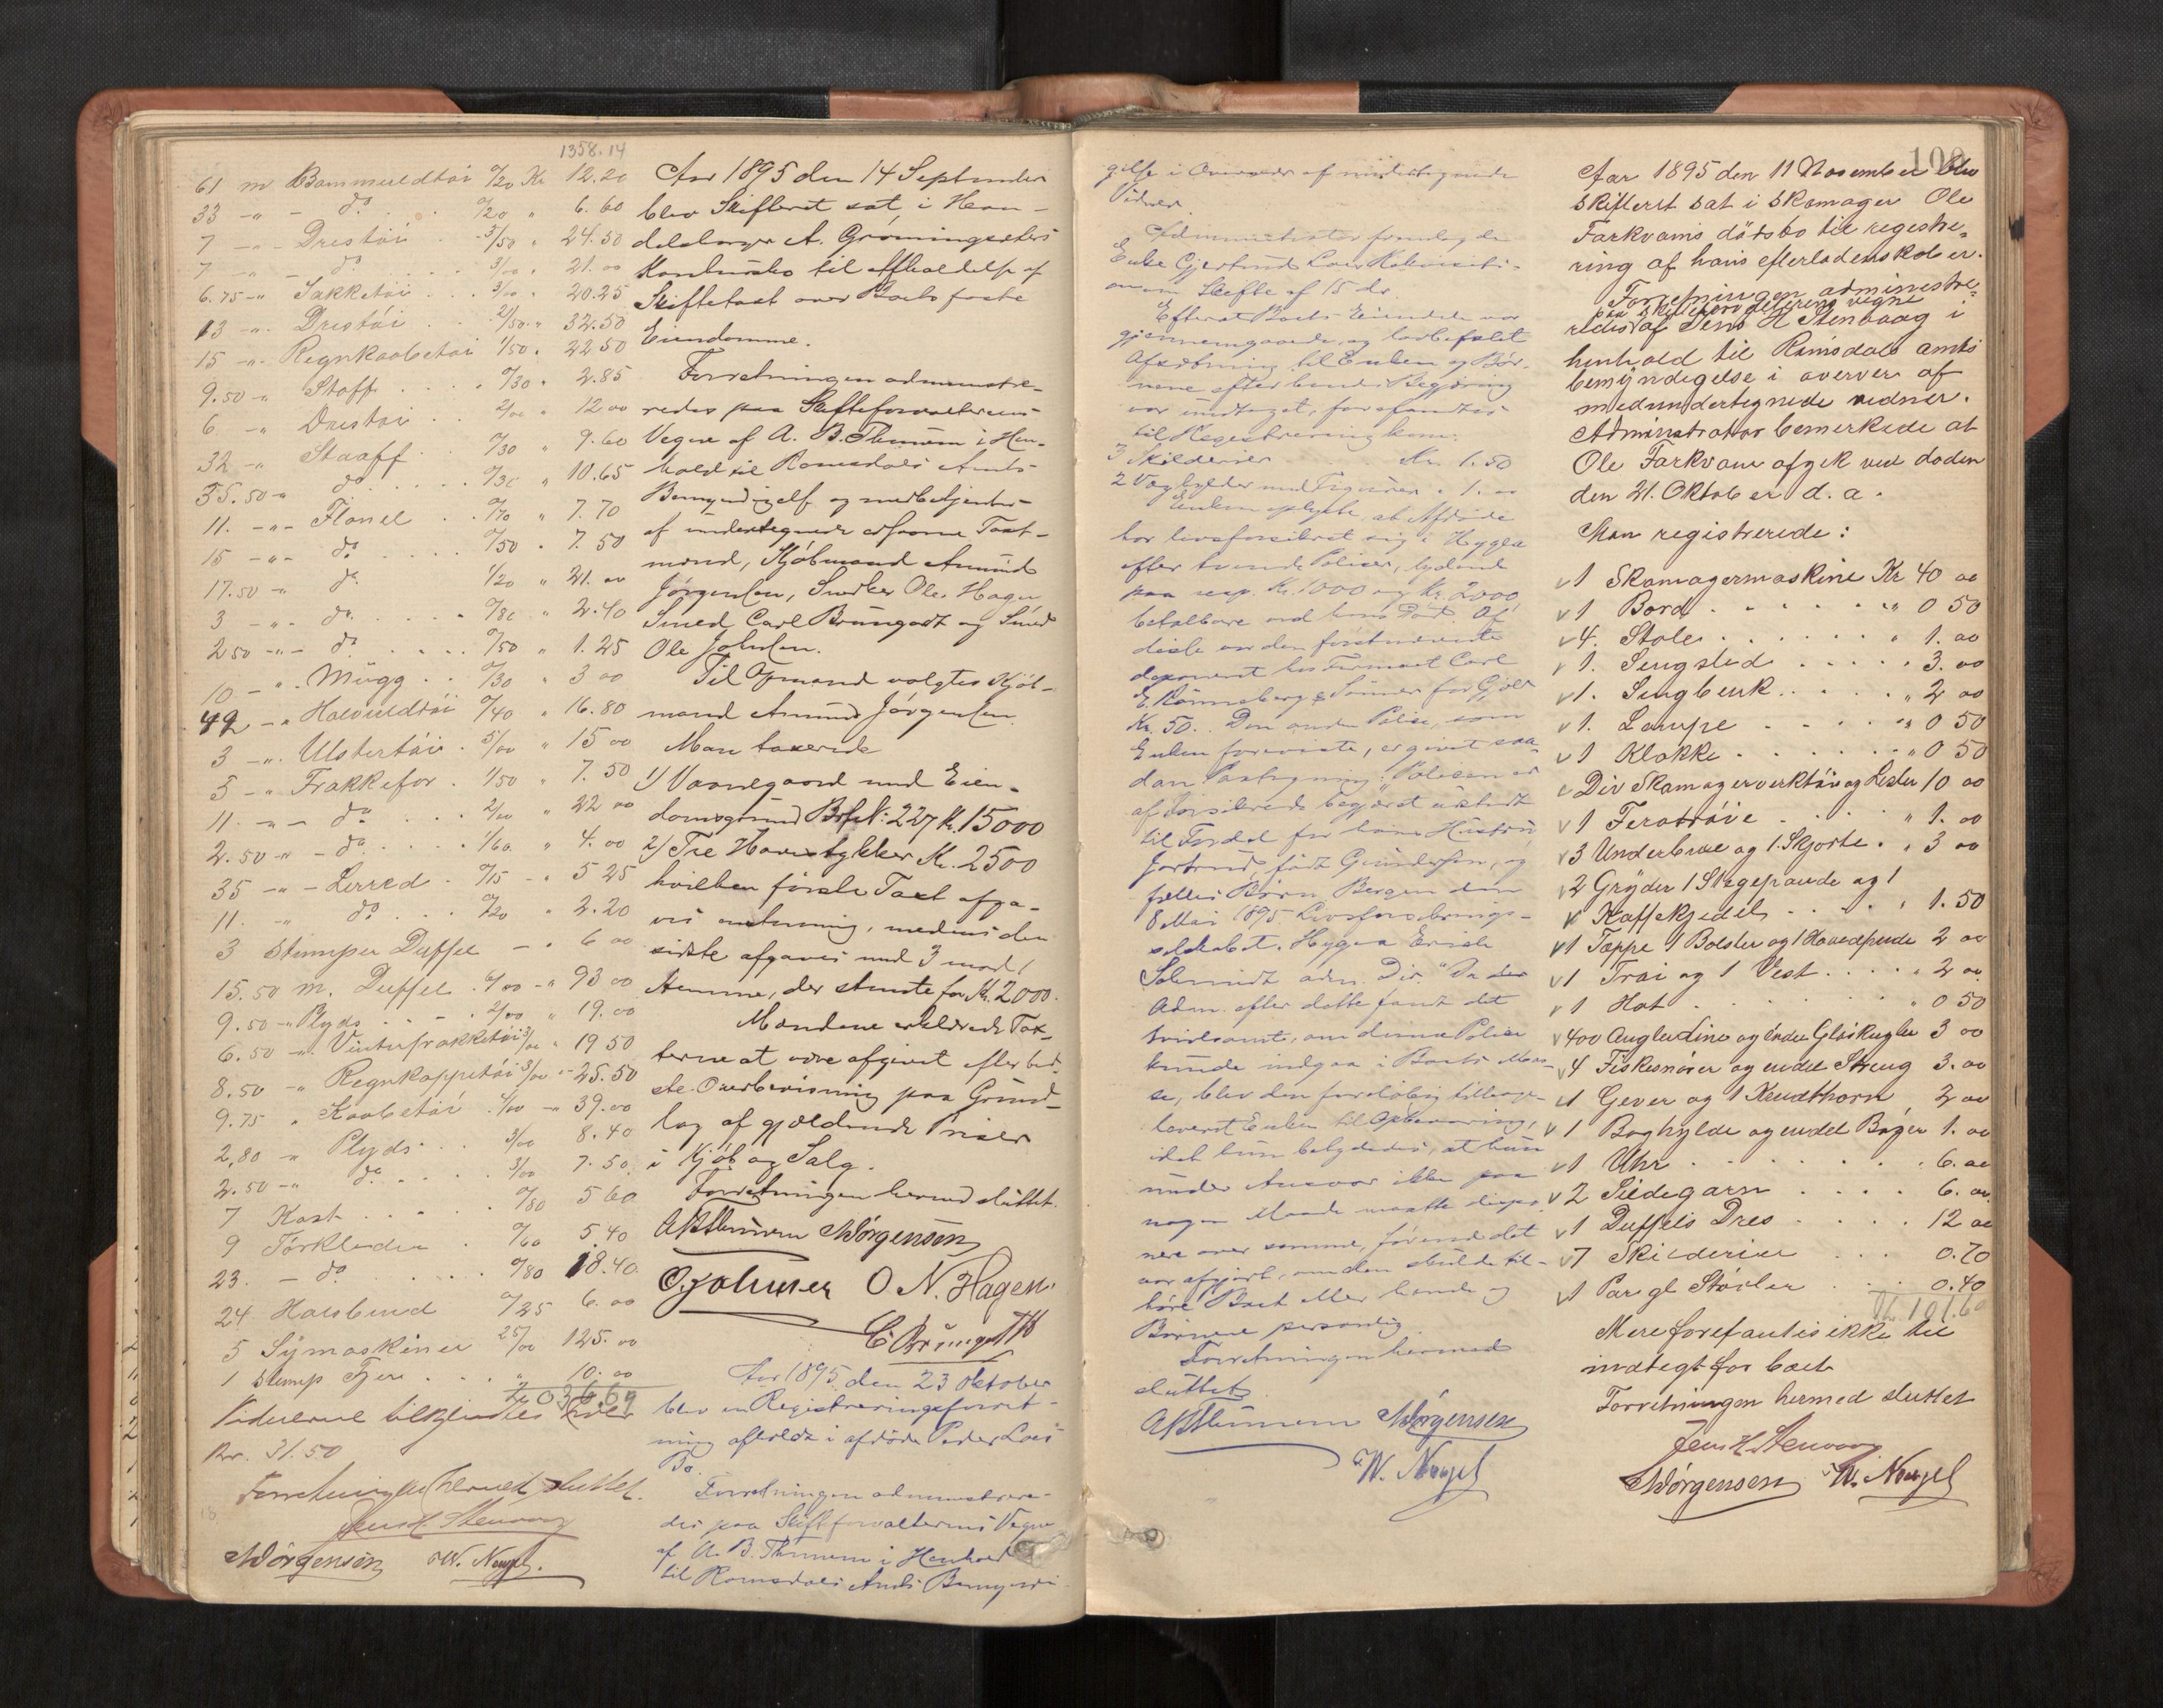 1358.14
61 m Bommuldtøi 0/20 Kr 12.20
33 -"- - do . . 0/20 " 6.60
7 -"- Drestøi . 3/50 " 24.50
7 -"- do . . 3/00 " 21.00
6.75 -" Jakketøi . . 3/00 " 20.25
13 -". Drestøi . . 2/50 " 32.50
15 -". Regnkaabetøi 1/50 " 22 50
9.50 -" Stoff . . . . 0/30 " 2.85
6 -" Drestøi . . 2/00 " 12 00
32 -" Staaff . . 0/30 " 9.60
35.50 -" do . . . . 0/30 " 10.65
11. -"- Flonel . . 0/70 " 7.70
15 -"- do . . . . 0/50 " 7.50
17.50 -" do 1/20 " 21.00
3 -"- do . . . . 0/80 " 2.40
2 50 -"- do . . . . 0/50 " 1.25
10 -". Mügg . . 0/30 " 3 00
42 -" Halvuldtøi 0/40 " 16.80
3 -". Ulstertøi . 5/00 " 15 00
5 -" Frakkefor . 1/50 " 7.50
11 -"- do . . . 2/00 " 22 00
2.50 -" - do . . . . 1/60 " 4.00
35 -"- Lerred . 0/15 - " 5 25
11. " do . . . 0/20 " 2.20
3 Stumper Duffel - " 6 00
15.50 m. Duffel . 6/00 -" 93 00
9.50 -" Plyds . . . . 2/00 " 19.00
6.50 -". Vinterfrakketøi 3/00 " 19 50
8.50 -" Regnkappetøi 3/00 -" 25.50
9.75 " Kaabetøi . 4/00 -" 39.00
2,80 " Plyds . . 3/00 8.40
2.50 -" do . . . . 3/00 7.50
7 Kast . . . . . 0/80 5 60
9 Tørklæder . 0/60 5.40
23. - do . . . . . 0/80 18.40
24 Halsbind 0/25 6.00
5 Symaskiner 25/00 125.00
1 Stump Fjer . . . " 10.00
2036.69
Vidnerne tilkjendtes hver
Kr. 31.50
Forretningen hermed sluttet.
Jens H Stenvaag
AJørgensen W. Nerges.
Aar 1895 den 14 September
blev Skifteret sat i Han-
delsborger A. Grønningsæters
Konkursbo til Afholdelse af
Skiftetaxt over Boets faste
Eiendomme.
Forretningen administre-
redes paa Skifteforvalterens
Vegne af A. B. Thunem i Hen-
hold til Romsdals Amts
Bemyndigelse og medbetjentes
af undertegnede edsvorne Taxt-
mænd, Kjøbmand Amund
Jørgensen, Snedker Ole Hagen
Smed Carl Brüngodt og Smed
Ole Johnsen.
Til Opmand valgtes Kjøb-
mand Amund Jørgensen.
Man taxerede
1) Vaanegaard med Eien-
domsgrund Brfr.: 227 Kr. 15000
2) Tre Havestykker Kr. 2500
hvilken første Taxt afga-
ves enstemmig, medens den
sidste afgaves med 3 mod 1
Stemme, der stemte for Kr. 2000.
Mændene erklærede Tax-
terne at være afgivet efter bed-
ste Overbevisning paa Grund-
lag af gjældende Priser
i Kjøb og Salg.
Forretningen hermed sluttet.
ABThunem AJørgensen
OJohnsen O. N. Hagen.
C. Brüngodt
Aar 1895 den 23 Oktober
blev en Registreringsforret-
ning afholdt i afdøde Peder Loes
Bo.
Forretningen administrere-
des paa Skifteforvalterens Vegne
af A. B. Thunem i Henhold
til Romsdals Amts Bemyndi-
gelse i Overvær af undertegnede
Vidner.
Administrator fremlagde
Enke Gjertrud Loes Rekvisiti-
on om Skifte af 15 ds.
Efterat Boets Eiendele var
gjennemgaaede og lovbefalet
Afsætning til Enken og Bør-
nene efter hendes Begjæring
var undtaget, forefandtes
til Registrering kun:
3 Skilderier Kr. 1.50
2 Væghylder med Figurer " 1.00
Enken oplyste, at Afdøde
har livsforsikret sig i Hygea
efter tvende Policer, lydende
paa resp. Kr. 1000 og Kr. 2000
betalbare ved hans Død. Af
disse var den førstnævnte
deponeret hos Firmaet Carl
E. Rønneberg & Sønner for Gjæld
Kr. 50. Den anden Police, som
Enken foreviste, er givet saa-
dan Paategning: "Policen er
af Forsikrede begjæret udstedt
til Fordel for hans Hustru
Jertrud, født Gundersen, og
fælles Børn. Bergen den
8 Mai 1895 Livsforsikrings-
selskabet Hygea Erich
Schmidt adm. Dir." Da
Adm. efter dette fandt det
tvivlsomt, om denne Police
kunde indgaa i Boets Mas-
se, blev den foreløbig tilbage-
leveret Enken til Opbevaring,
idet hun betydedes, at hun
under Ansvar ikke paa
nogen Maade maatte dispo-
nere over samme, førend det
var afgjort, om den skulde til-
høre Boet eller hende og
Børnene personlig.
Forretningen hermed
sluttet.
ABThunem AJørgensen
W. Nerges
100
Aar 1895 den 11 November blev
skifteret sat i Skomager Ole
Farkvams dødsbo til registre-
ring af hans efterladenskaber.
Forretningen administre-
paa skifteforvalterens vegne
redes af Jens H Stenvaag i
henhold til Romsdals amts
bemyndigelse i overver af
medundertegnede vidner.
Administrator bemerkede at
Ole Farkvam afgik ved døden
den 21. Oktober d. a.
Man registrerede:
1 Skomagermaskine Kr 40 00
1 Bord . . . . . . " 0 50
4. Stole . . . . . . " 1.00
1. Sengsted . . . . " 3.00
1. Sengbenk . . . . " 2 00
1. Lampe . . . . " 0 50
1 Klokke . . . . . . " 0 50
Div Skomagerverktøi og Lester 10 00
1 Feratrøie . . . . " 1.00
3 Underbuxe og 1 Skjorte . " 3 00
2 Gryder 1 Stegepande og 1
Kaffekjedel . . . . . " 1.50
1 Tæppe 1 Bolster og 1 Hovedpude 2 00
1 Trøi og 1 Vest . . . . " 2 00
1 Hat . . . . . . . . " 0 50
400 Angler Line og endel Glaskugler 3 00
4 Fiskesnører og endel Streng 3.00
1 Gever og 1 Krudthorn 2 00
1 Boghylde og endel Bøger 1.00
1 Uhr . . . . . . . . " 6.00
2 Sildegarn . . . . 6.00
1 Duffels Dres . . . . 12 00
7 Skilderier . . . 0.70
1 Par gl Støvler . . . 0.40
Kr. 101.60
Mere forefantes ikke til
indtegt for boet
Forretningen hermed sluttet
Jens H Stenvaag
AJørgensen W. Nerges